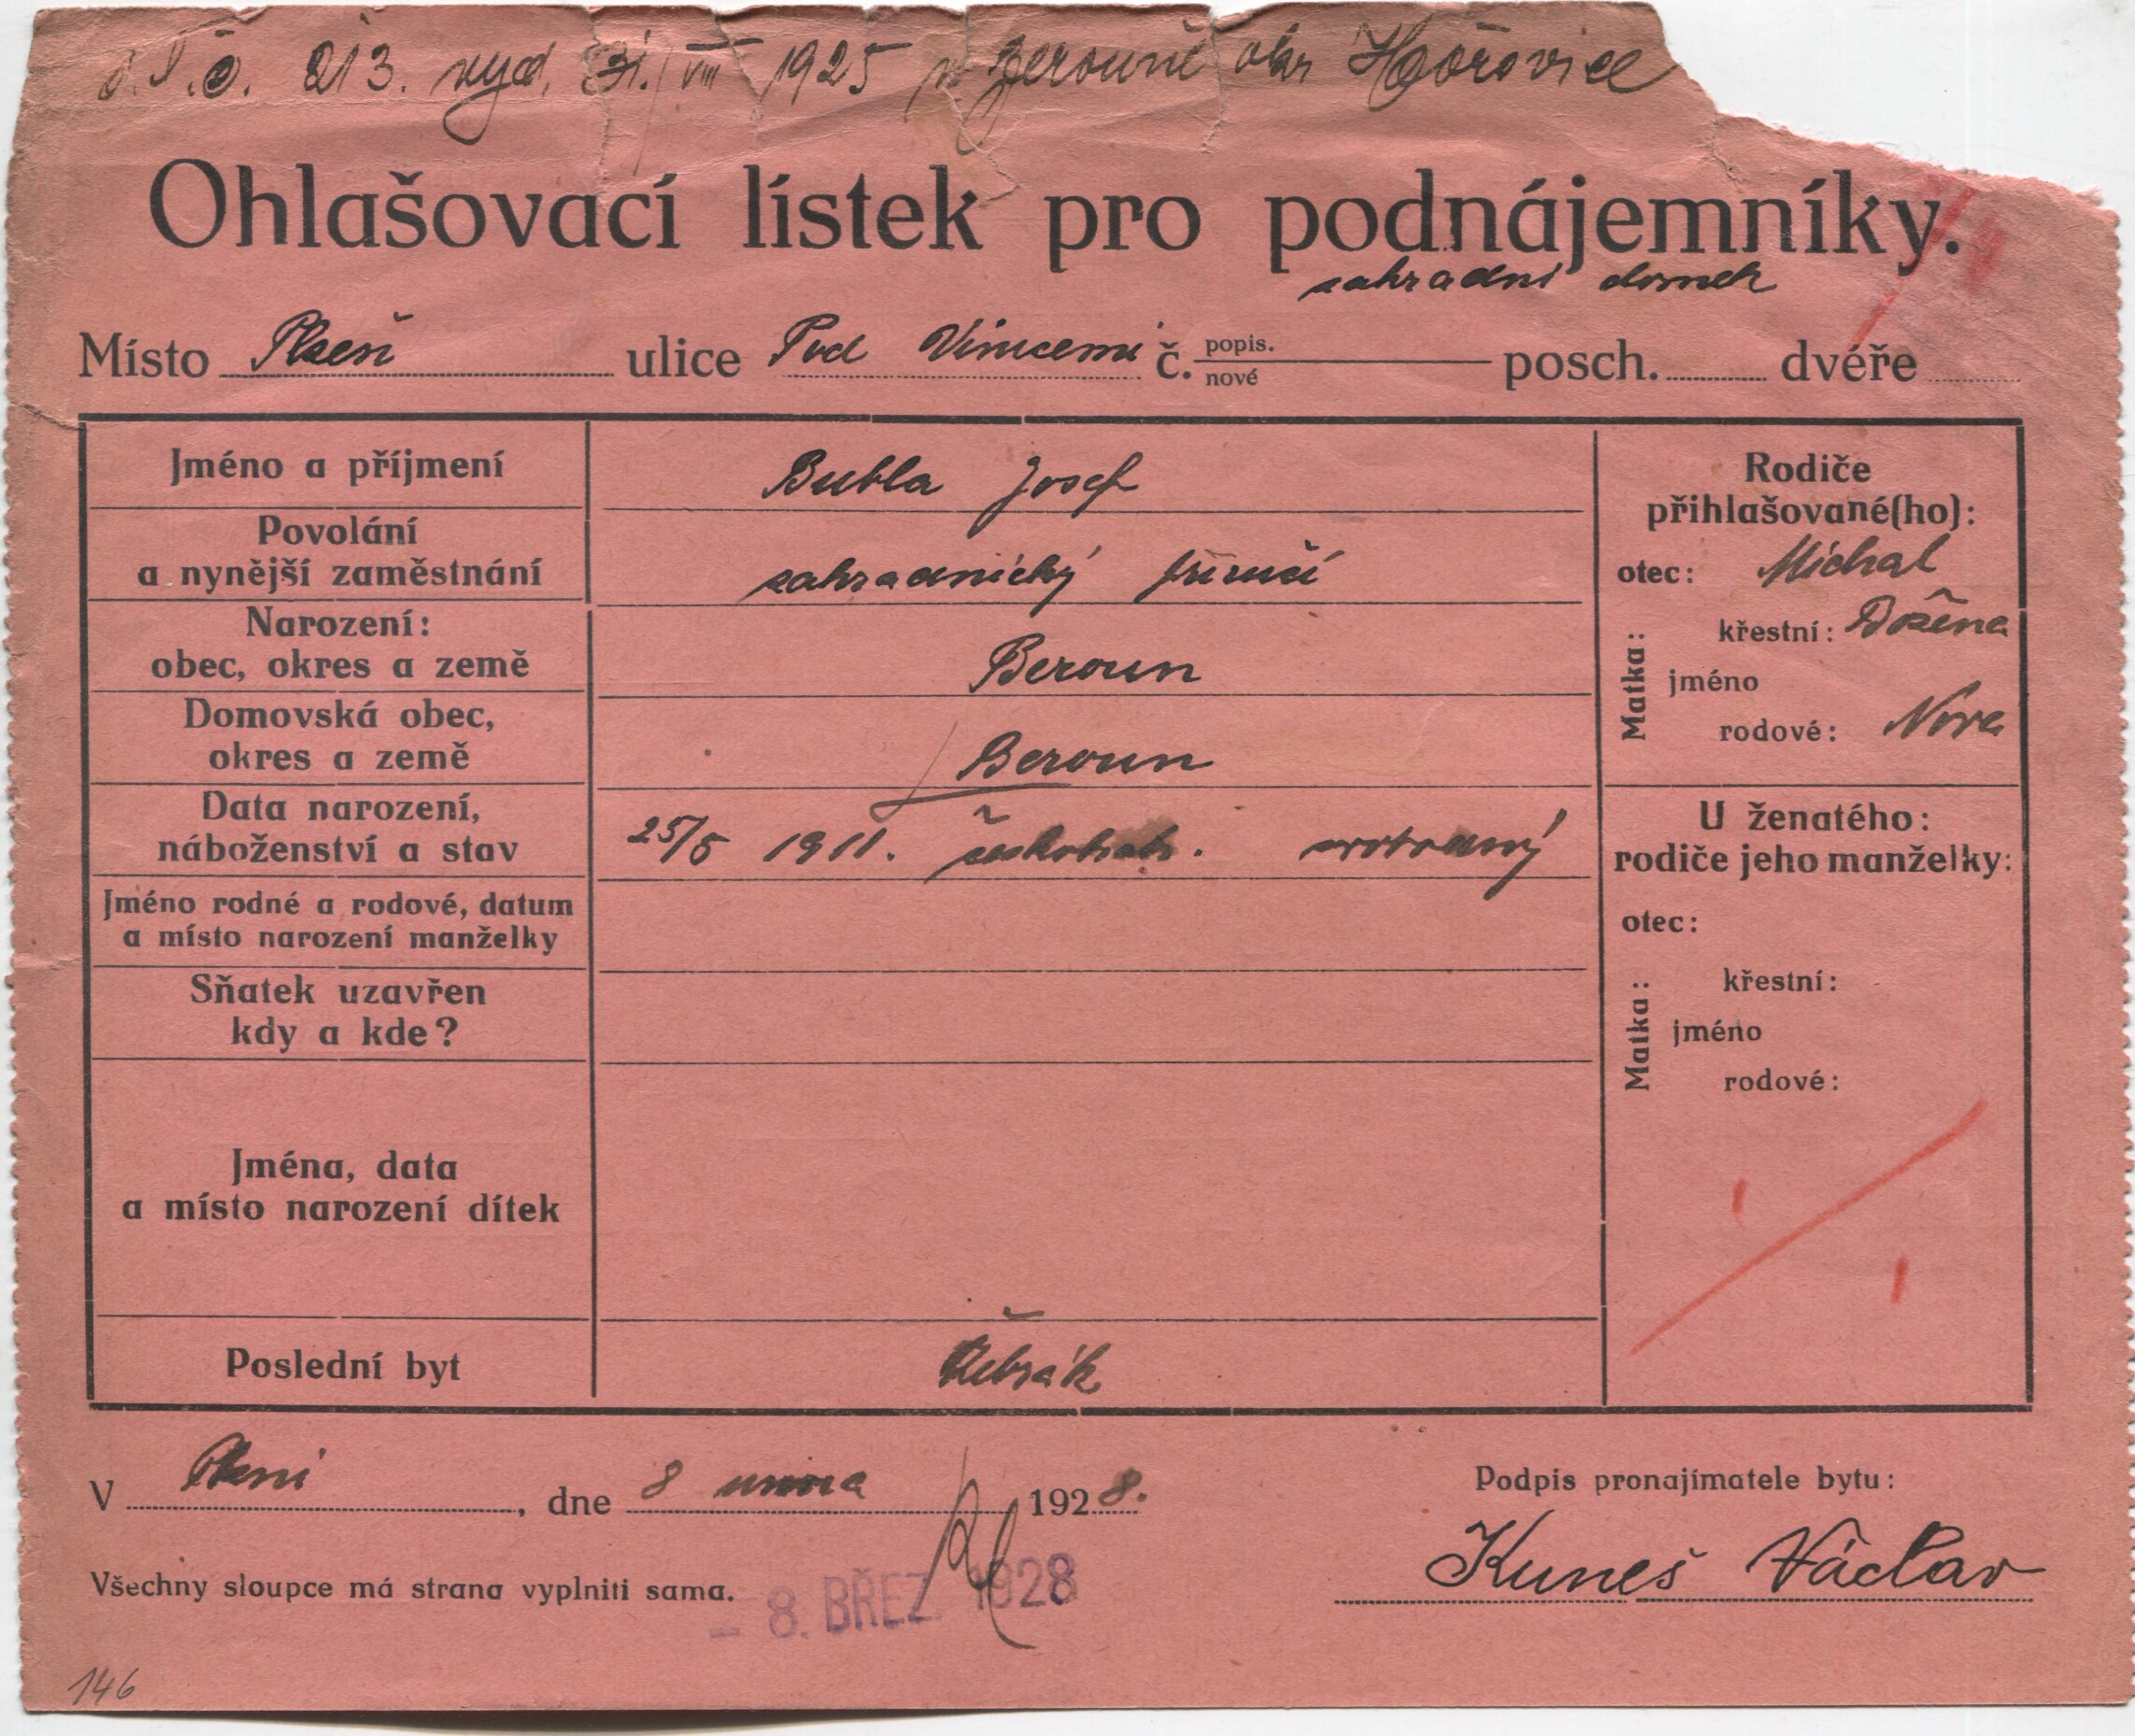 č. 213. vyd. 31./VIII 1925 v Berouně okr Hořovice
Ohlašovací lístek pro podnájemníky.
zahradní domek
Místo Plzeň ulice Pod Vinicemi č. popis. nové posch. dvéře
Jméno a příjmení Bubla Josef
Povolání
a nynější zaměstnání zahradnický příručí
Narození:
obec, okres a země Beroun
Domovská obec,
okres a země Beroun
Data narození,
náboženství a stav 25/5 1911. českobratr. svobodný
Jméno rodné a rodové, datum
a místo narození manželky
Sňatek uzavřen
kdy a kde?
Jména, data
a místo narození dítek
Poslední byt Žebrák
Rodiče
přihlašované(ho):
otec: Michal
Matka:
křestní: Božena
jméno
rodové: Nova
U ženatého:
rodiče jeho manželky:
otec:
Matka:
křestní:
jméno
rodové:
V Plzni, dne 8 února 1928.
Podpis pronajímatele bytu:
Kuneš Václav
Všechny sloupce má strana vyplniti sama.
- 8. BŘEZ. 1928
146